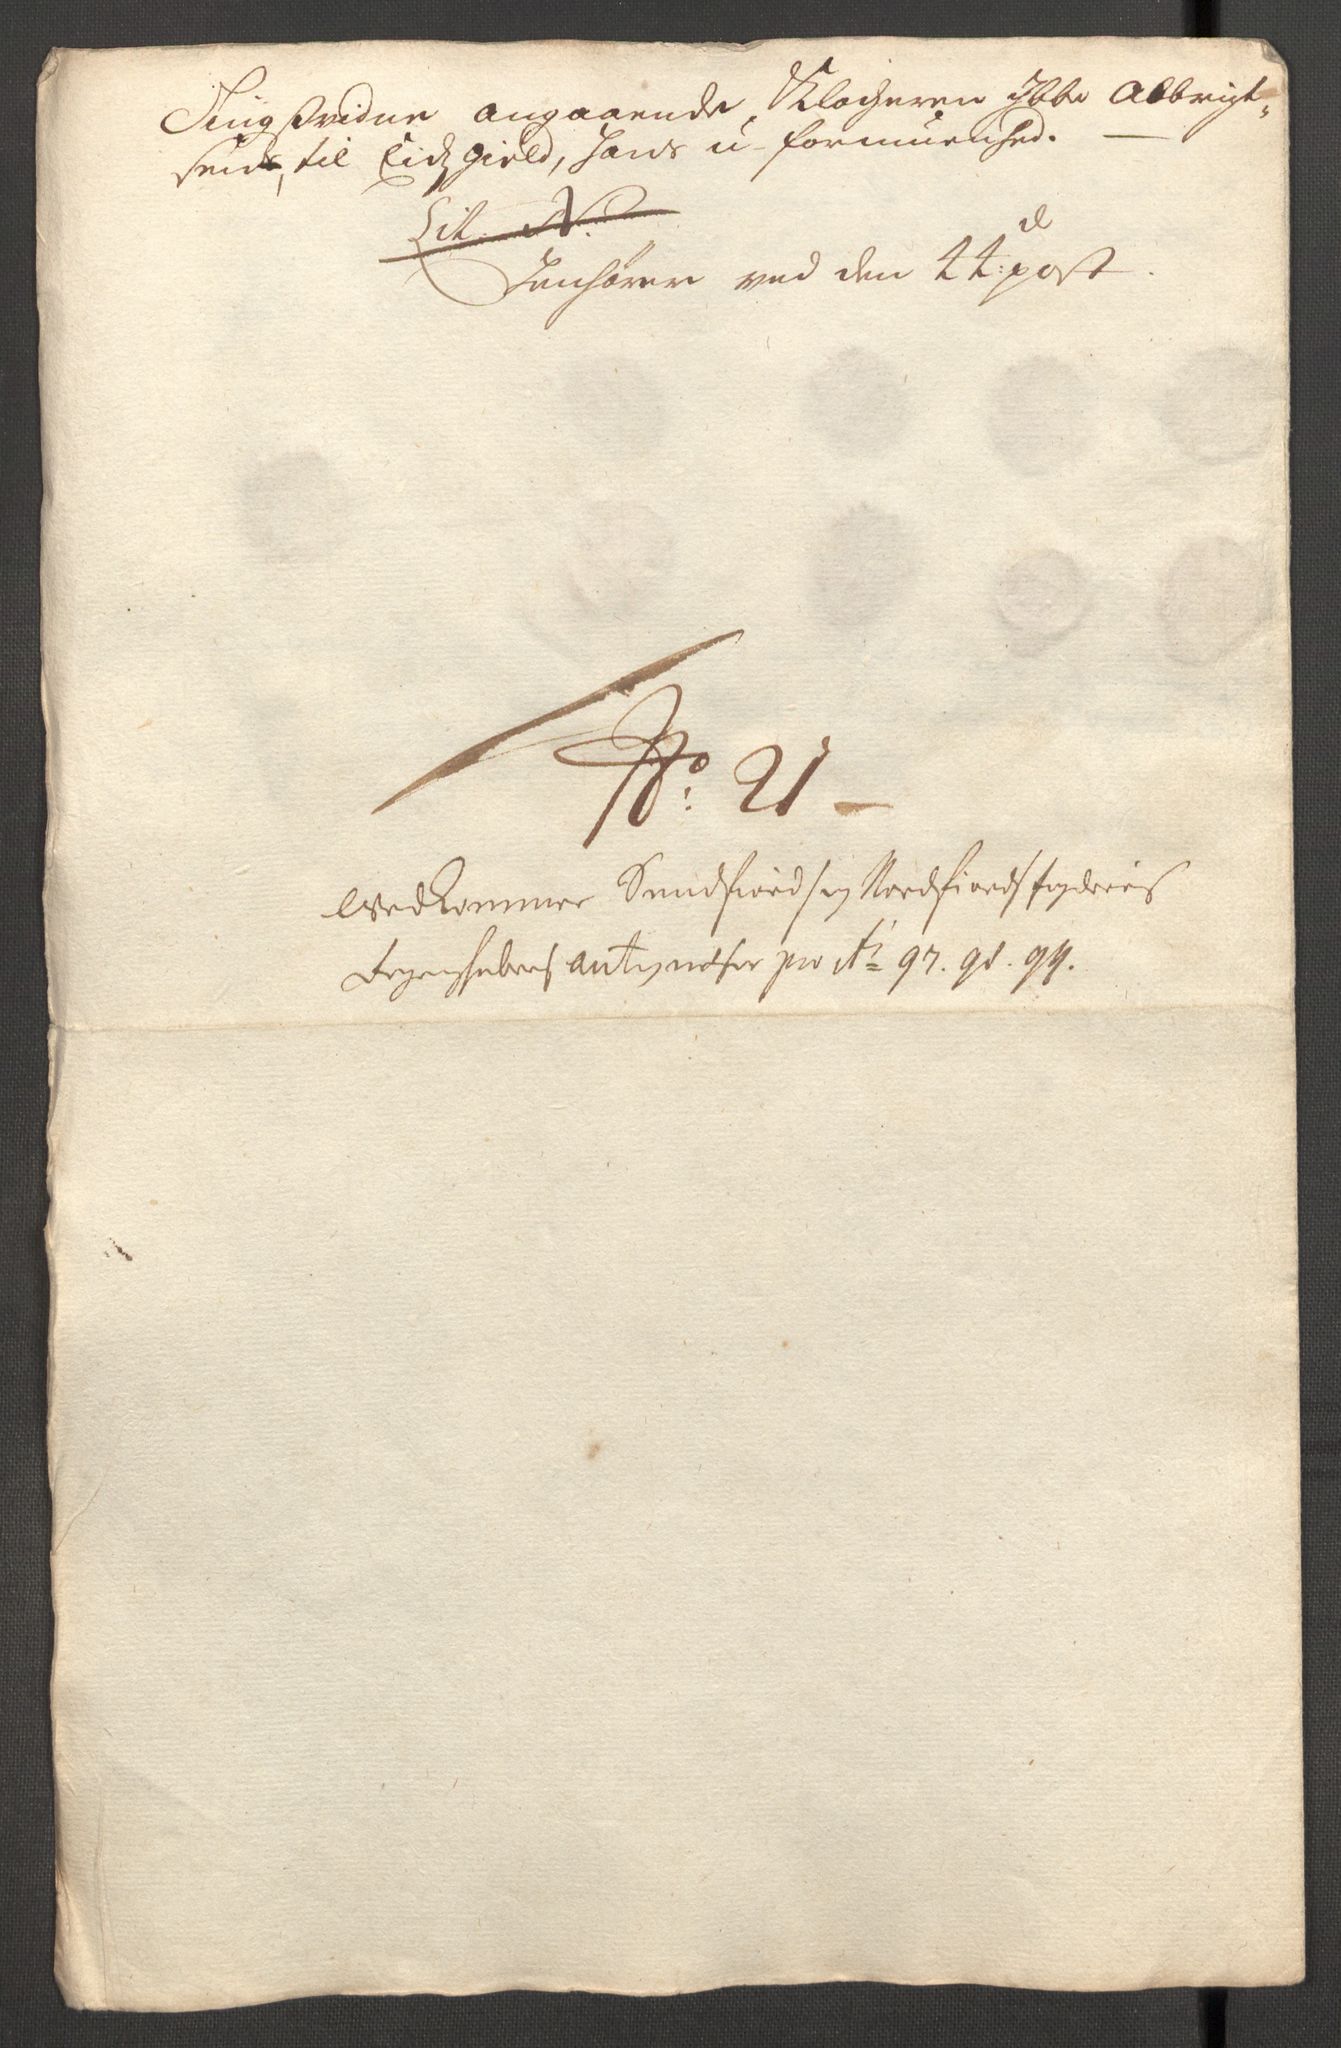 Tingsvidne angaaende Klocheren Ibbe Albrigt-
sens, til Eidzgield, hans u-formuenhed.
Lit. N.
Henhører ved den 44: post.
No: 21
Vedkommer Sundfiord og Nordfiords fogderies
Regenskabers antegnelser pro Ao 97. 98. 99.